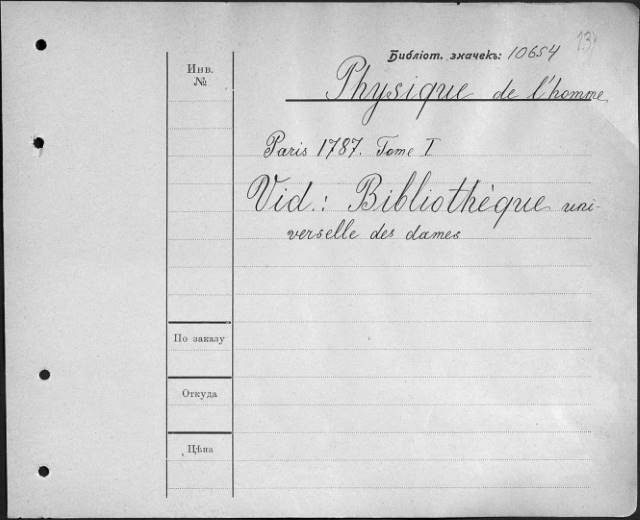 23
Библіот. значекъ: 10654
Инв.
№
Physique de l'homme
Paris 1787. Tome I
Vid.: Bibliothèque uni-
verselle des dames
По заказу
Откуда
Цѣна